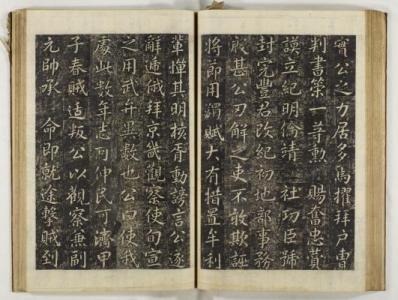 實公之力居多焉擢拜戶曹
判書策一等勳 賜奮忠贊
謨立紀明倫靖 社功臣號
封完豐君改紀初地部事務
殷甚公刃解之吏不敢欺誣
將節用蠲賦大有措置牟利
輩憚其明核胥動謗言公遂
解遞俄拜京畿觀察使旬宣
之用武 數也公曰使我
處此數年志可伸民可濟甲
子春賊适叛公以觀察兼副
元帥承 命即就途擊賊到